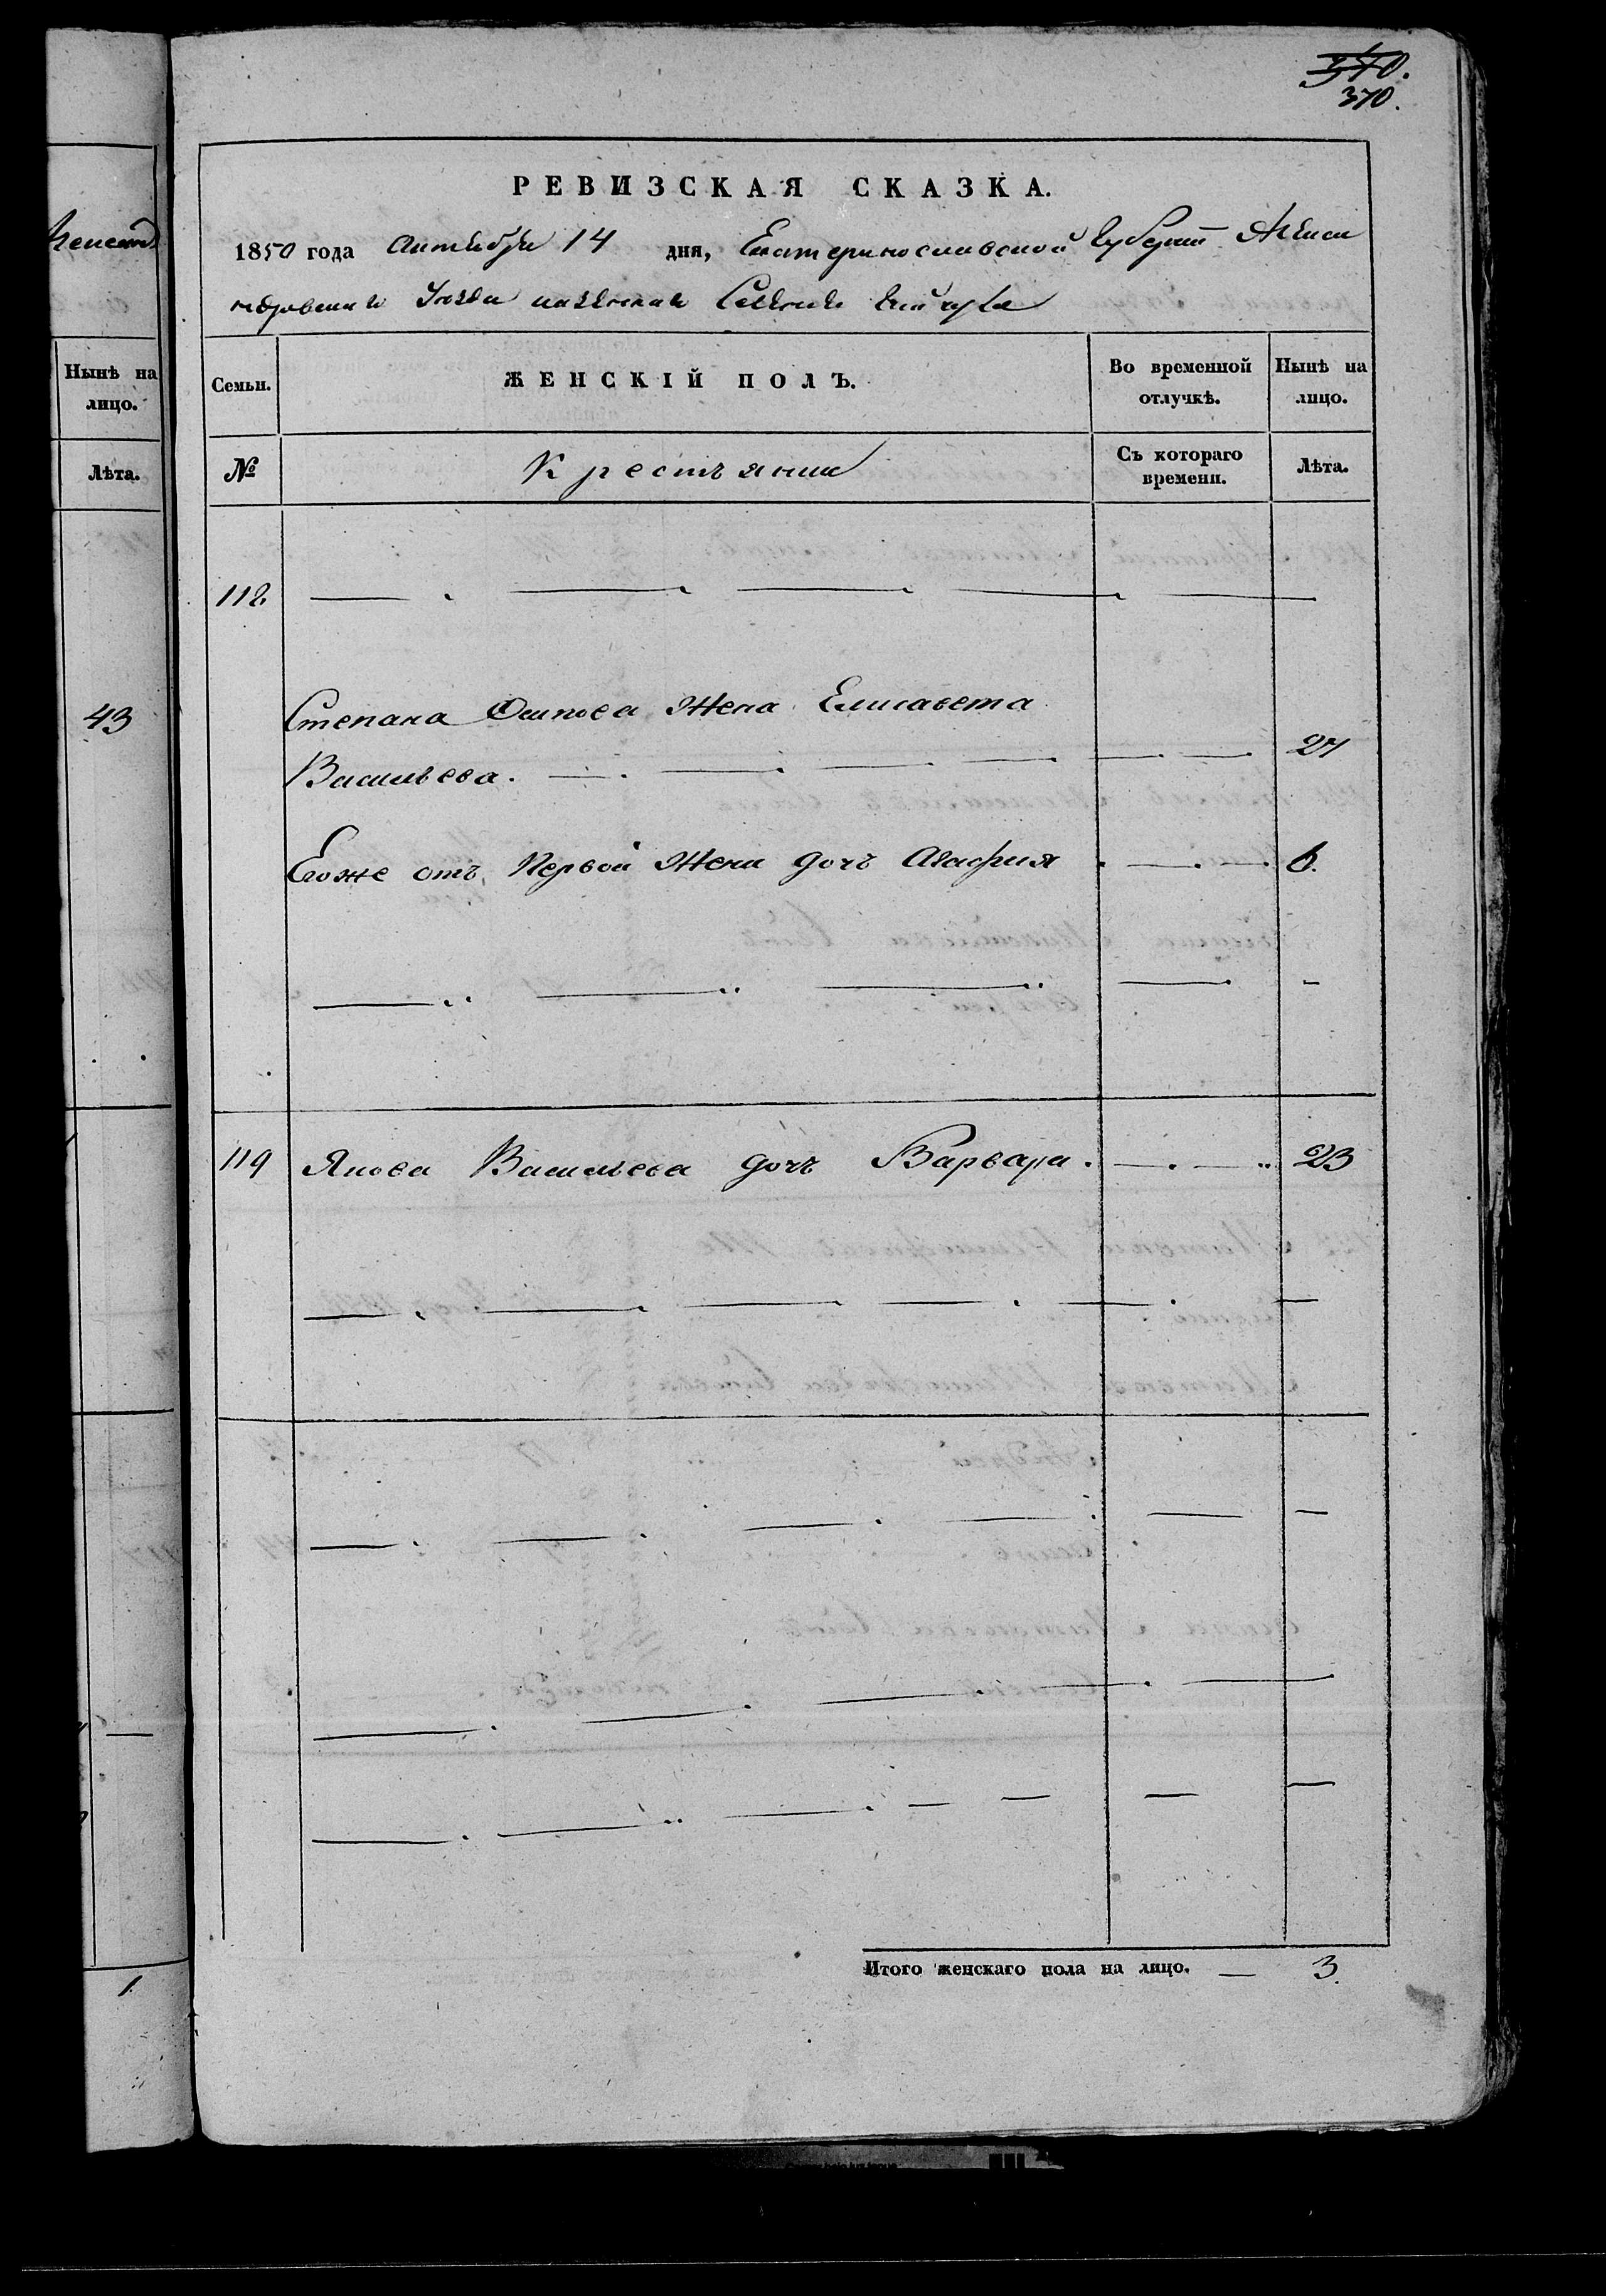 370.
370.
РЕВИЗСКАЯ СКАЗКА.
1850 года Октября 14 дня, Екатеринославской Губерніи Алекса
ндровскаго Уезда казеннаго Селенія
Нынѣ на
лицо.
Лѣта.
43
1.
Семьи. ЖЕНСКІЙ ПОЛЪ. Во временной отлучкѣ. Нынѣ на лицо.
№ Крестьяния Съ котораго времени. Лѣта.
118
Степана Осипова Жена Елисавета
Васильева. 27
Егоже отъ Первой Жени дочь Агафия 6.
119 Якова Васильева дочь Варвара. 23
Итого женскаго пола на лицо. — 3.